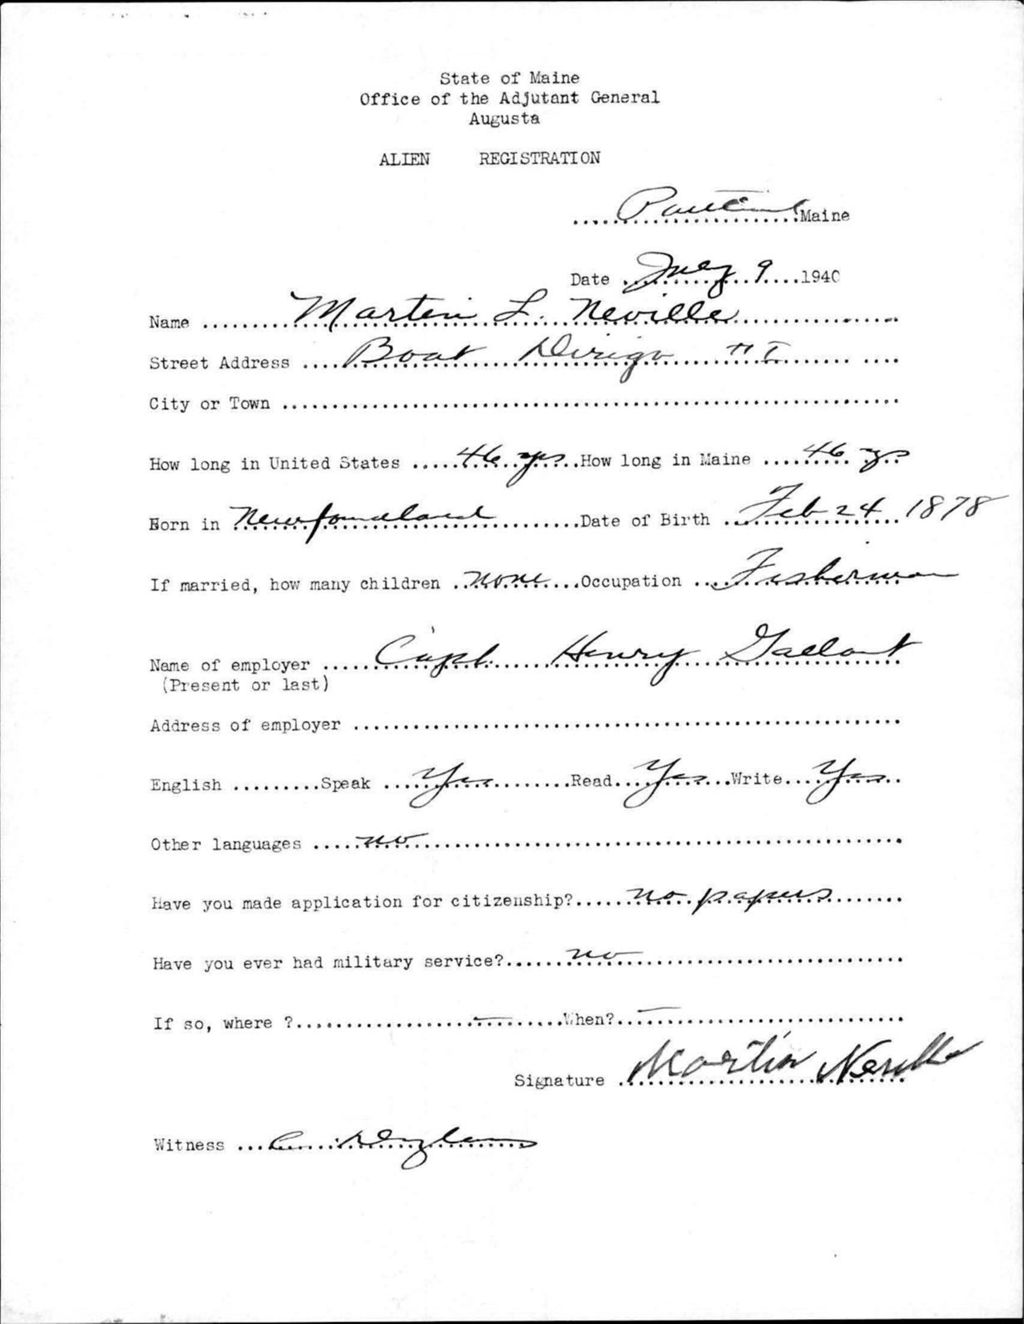 State of Maine
Office of the Adjutant General
Augusta
ALIEN REGISTRATION
Maine
Date July 9 1940
Name Martin L. Neville
Street Address Boat Dirigo
City or Town
How long in United States 46 yrs How long in Maine 46 yrs
Born in Newfoundland Date of Birth Feb 24 1878
If married, how many children none Occupation Fisherman
Name of employer Capt. Henry Gallant
(Present or last)
Address of employer
English Speak Yes Read Yes Write Yes
Other languages no
Have you made application for citizenship? no papers
Have you ever had military service? no
If so, where ? — When? —
Signature Martin Neville
Witness